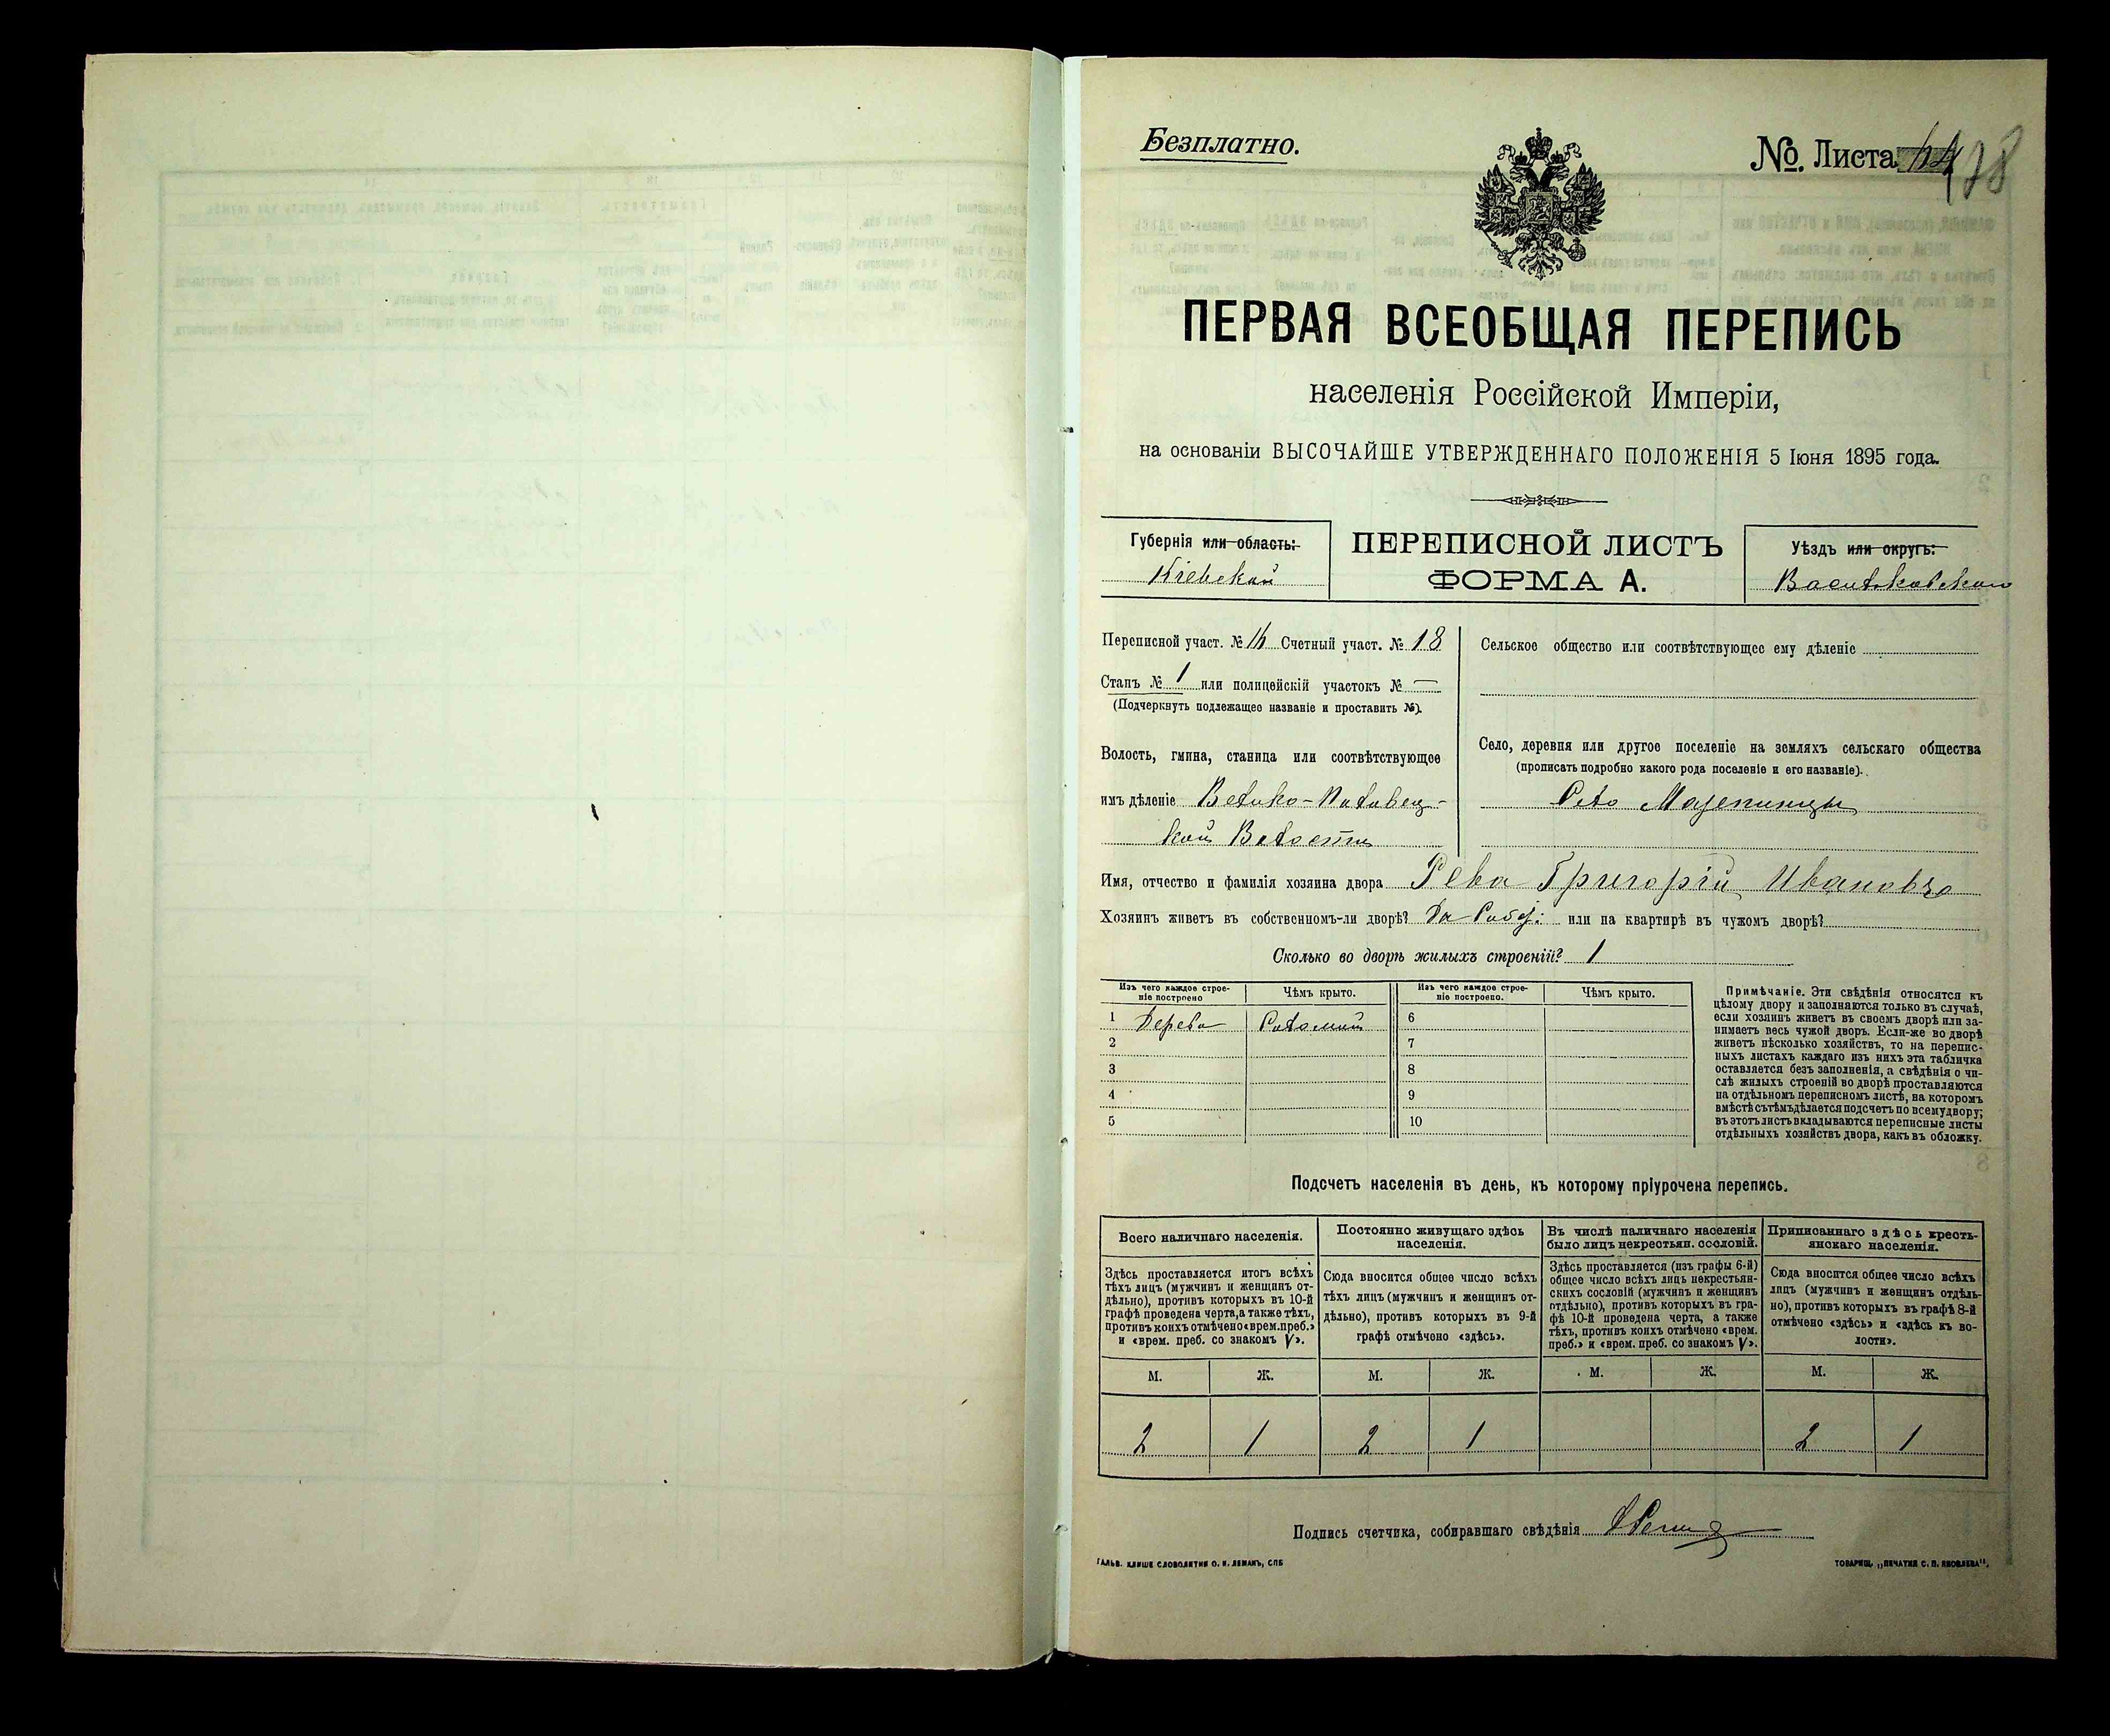 Безплатно.
№. Листа
ПЕРВАЯ ВСЕОБЩАЯ ПЕРЕПИСЬ
населенія Россійской Имперіи,
на основаніи ВЫСОЧАЙШЕ УТВЕРЖДЕННАГО ПОЛОЖЕНІЯ 5 Іюня 1895 года.
Губернія или область:
Кіевской
ПЕРЕПИСНОЙ ЛИСТЪ
ФОРМА А.
Уѣздъ или округъ:
Васильковскаго
Переписной участ. № Счетный участ. № 18
Станъ № 1 или полицейскій участокъ № —
(Подчеркнуть подлежащее названіе и проставить №).
Волость, гмина, станица или соотвѣтствующее
имъ дѣленіе Велико-Половец-
кой Волости
Сельское общество или соотвѣтствующее ему дѣленіе
Село, деревня или другое поселеніе на земляхъ сельскаго общества
(прописать подробно какого рода поселеніе и его названіе).
Село Мазепинцы
Имя, отчество и фамилія хозяина двора Рева Григорій Ивановъ
Хозяинъ живетъ въ собственномъ-ли дворѣ? Да или на квартирѣ въ чужомъ дворѣ?
Сколько во дворѣ жилыхъ строеній? 1
Изъ чего каждое строе-
ніе построено
Чѣмъ крыто.
Изъ чего каждое строе-
ніе построено.
Чѣмъ крыто.
1 Дерева Соломой 6
2 7
3 8
4 9
5 10
Примѣчаніе. Эти свѣдѣнія относятся къ
цѣлому двору и заполняются только въ случаѣ,
если хозяинъ живетъ въ своемъ дворѣ или за-
нимаетъ весь чужой дворъ. Если-же во дворѣ
живетъ нѣсколько хозяйствъ, то на перепис-
ныхъ листахъ каждаго изъ нихъ эта табличка
оставляется безъ заполненія, а свѣдѣнія о чи-
слѣ жилыхъ строеній во дворѣ проставляются
на отдѣльномъ переписномъ листѣ, на которомъ
вмѣстѣ съ тѣмъ дѣлается подсчетъ по всему двору;
въ этотъ листъ вкладываются переписные листы
отдѣльныхъ хозяйствъ двора, какъ въ обложку.
Подсчетъ населенія въ день, къ которому пріурочена перепись.
Всего наличнаго населенія.
Здѣсь проставляется итогъ всѣхъ
тѣхъ лицъ (мужчинъ и женщинъ от-
дѣльно), противъ которыхъ въ 10-й
графѣ проведена черта, а также тѣхъ,
противъ коихъ отмѣчено «врем. преб.»
и «врем. преб. со знакомъ V».
Постоянно живущаго здѣсь
населенія.
Сюда вносится общее число всѣхъ
тѣхъ лицъ (мужчинъ и женщинъ от-
дѣльно), противъ которыхъ въ 9-й
графѣ отмѣчено «здѣсь».
Въ числѣ наличнаго населенія
было лицъ некрестьян. сословій.
Здѣсь проставляется (изъ графы 6-й)
общее число всѣхъ лицъ некрестьян-
скихъ сословій (мужчинъ и женщинъ
отдѣльно), противъ которыхъ въ гра-
фѣ 10-й проведена черта, а также
тѣхъ, противъ коихъ отмѣчено «врем.
преб.» и «врем. преб. со знакомъ V».
Приписаннаго здѣсь кресть-
янскаго населенія.
Сюда вносится общее число всѣхъ
лицъ (мужчинъ и женщинъ отдѣль-
но), противъ которыхъ въ графѣ 8-й
отмѣчено «здѣсь» и «здѣсь къ во-
лости».
М. Ж. М. Ж. М. Ж. М. Ж.
2 1 2 1 2 1
Подпись счетчика, собиравшаго свѣдѣнія
ГАЛЬВ. КЛИШЕ СЛОВОЛИТНИ О. И. ЛЕМАНЪ, СПБ
ТОВАРИЩ. „ПЕЧАТНЯ С. П. ЯКОВЛЕВА".